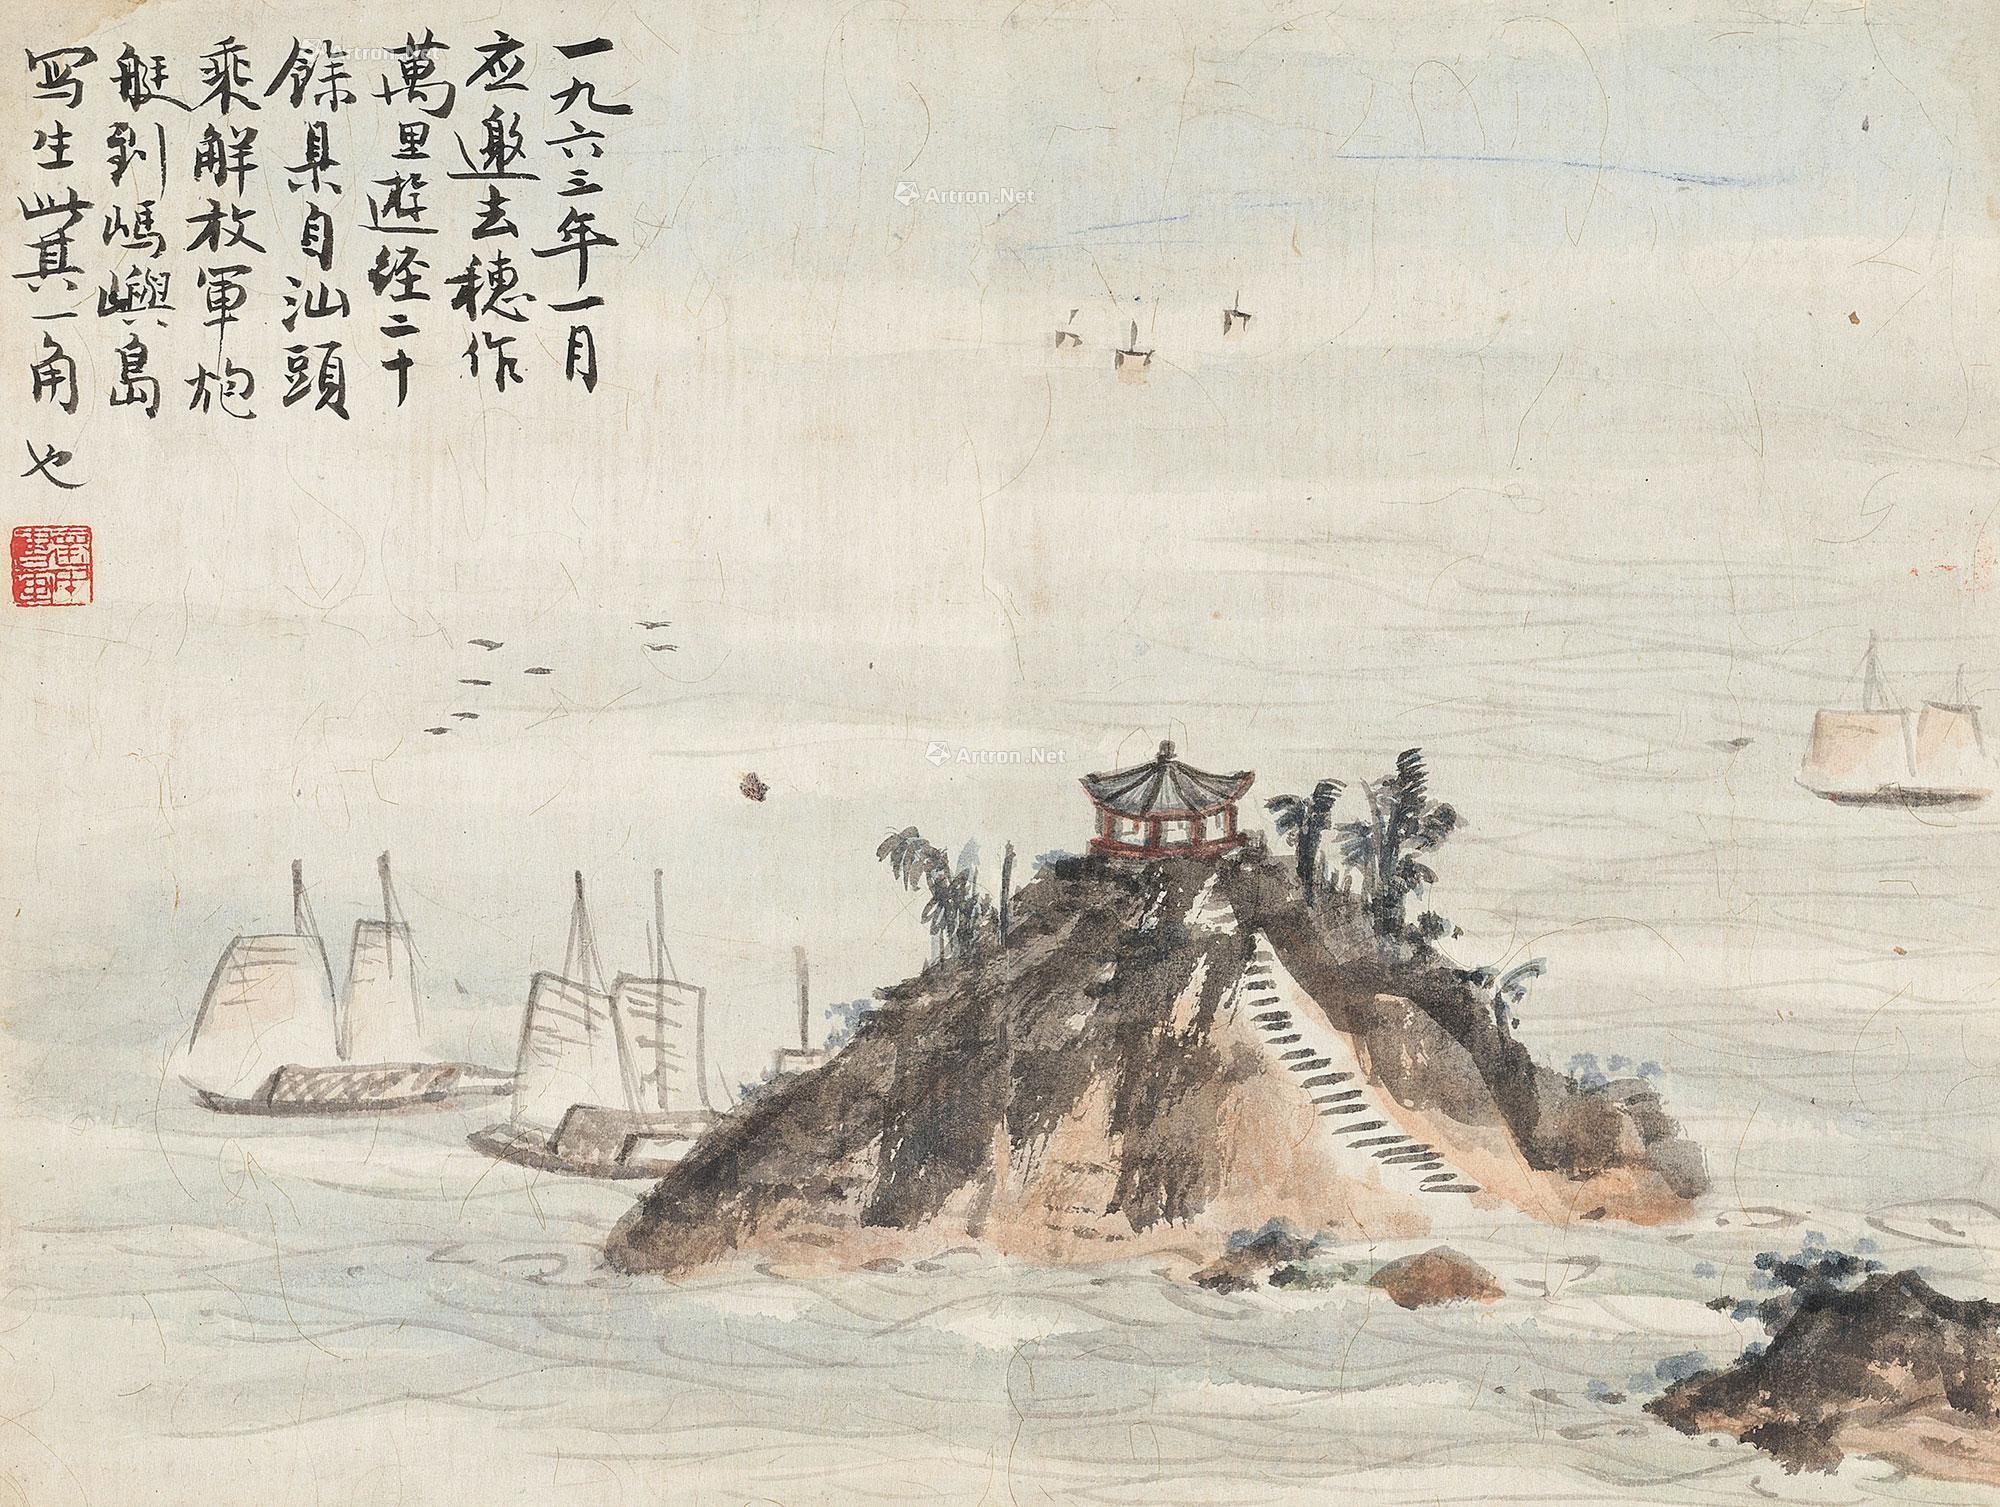 一九六三年一月
应邀去穗作
萬里遊经二十
餘县自汕頭
乘解放军炮
艇到嶋嶼島
写生此其一角也
Artron.Net
Artron.Net
Artron.Net